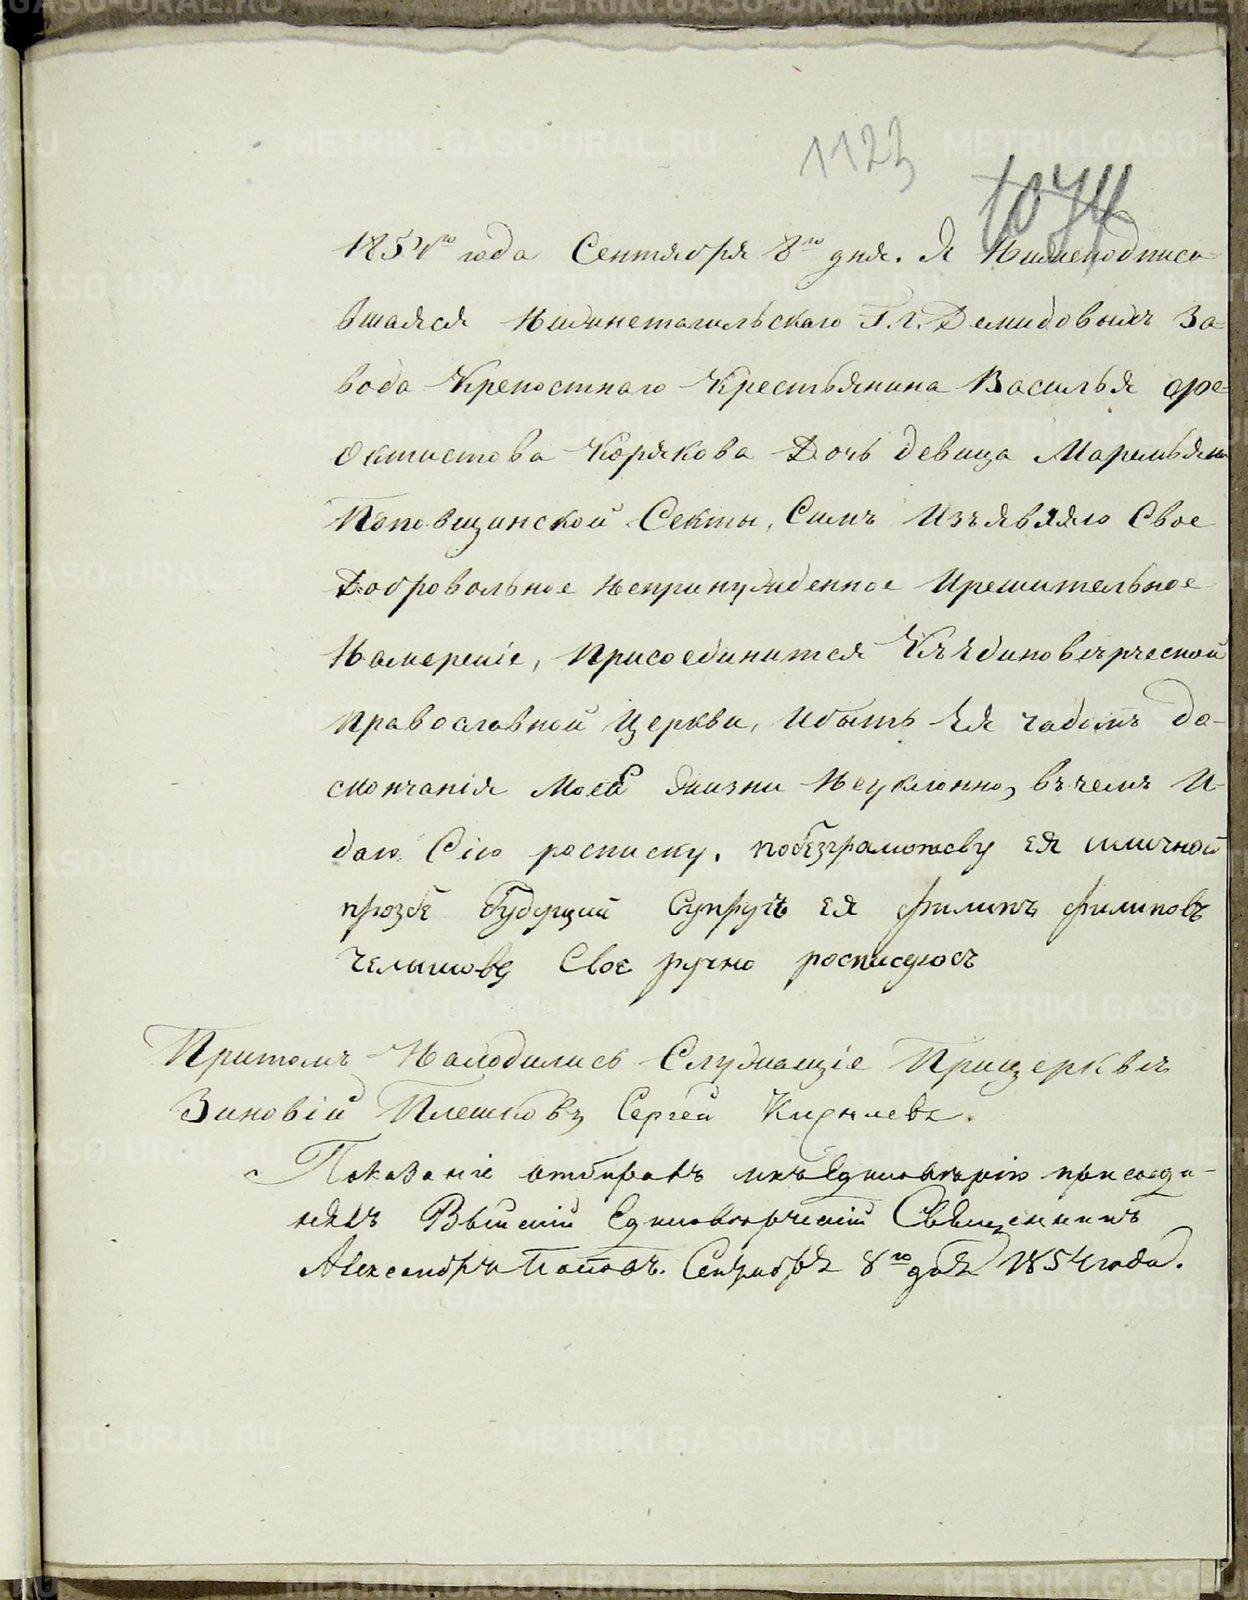 1123
1074
1854го года Сентября 8го дня. Я Нижеподписа-
вшаяся Нижнетагильскаго Г.г. Демидовыхъ За-
вода Крепостнаго Крестьянина Василья Фе-
октистова Корякова Дочь девица Маремьяна
Поповщинской Секты, Симъ Изъявляю Свое
Добровольное непринужденное Ирешительное
Намереніе, присоединится КъЕдиноверческой
православной Церкви, Ибыть Ея чадомъ до-
скончанія Моей жизни Неуклонно, въчемъ И-
даю Сію росписку. побезграмотству ея иличной
прозбе будущий Супругъ ея Филипъ Филиповъ
Челышовъ Свое ручно росписуюсъ
Притомъ Находились Служащіе Прицерквѣ
Зиновій Плешковъ Сергей
Показаніе отбиралъ икъЕдиновѣрію присоеди-
нялъ Единовѣрческій Священникъ
Александръ Поповъ. Сентября 8го дня 1854 года.
METRIKI.GASO-URAL.RU